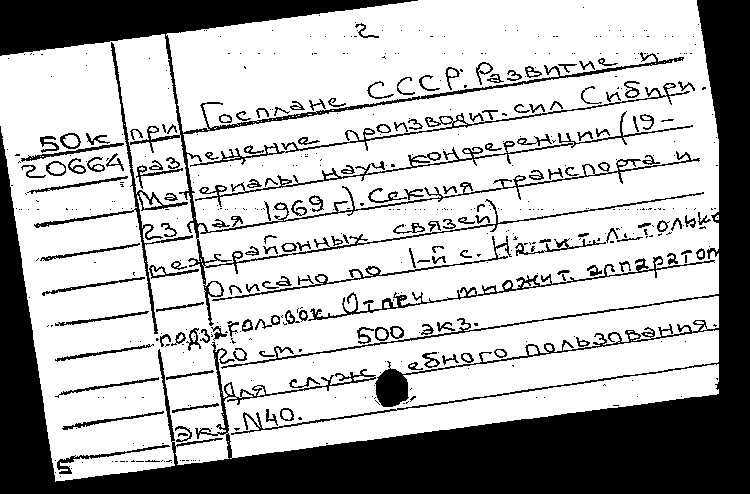 2
при Госплане СССР. Развитие и
50к
размещение производит. сил Сибири.
20664
Материалы науч. конференции (19-
23 мая 1969 г.). Секция транспорта и
межрайонных связей).
Описано по 1-й с. На тит. л. только
подзаголовок. Отпеч. множит. аппаратом
20 см. 500 экз.
Для служебного пользования.
экз. N40.
5